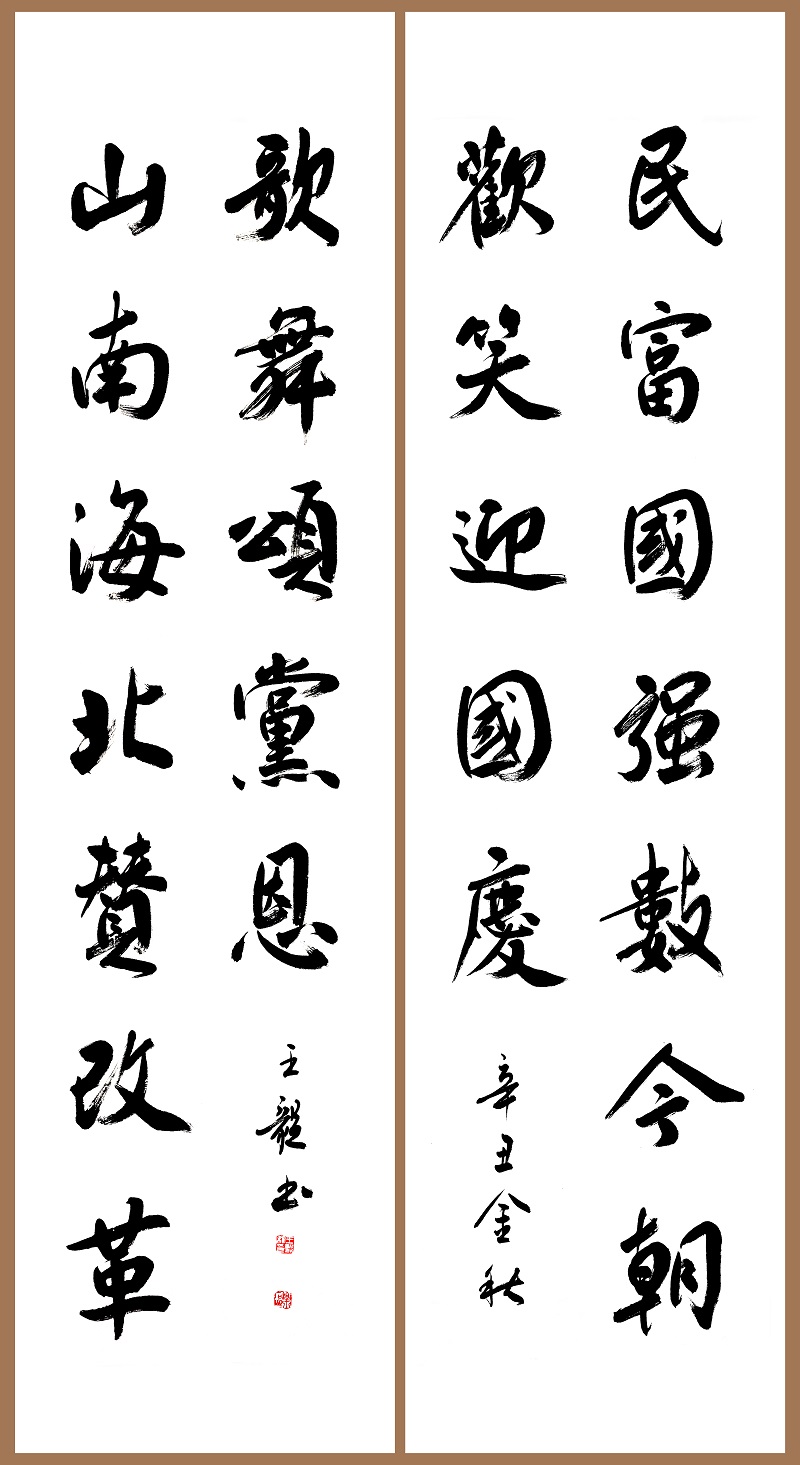 民富國强數今朝
歡笑迎國慶
辛丑金秋
山南海北賛改革
歌舞頌黨恩
王龍书